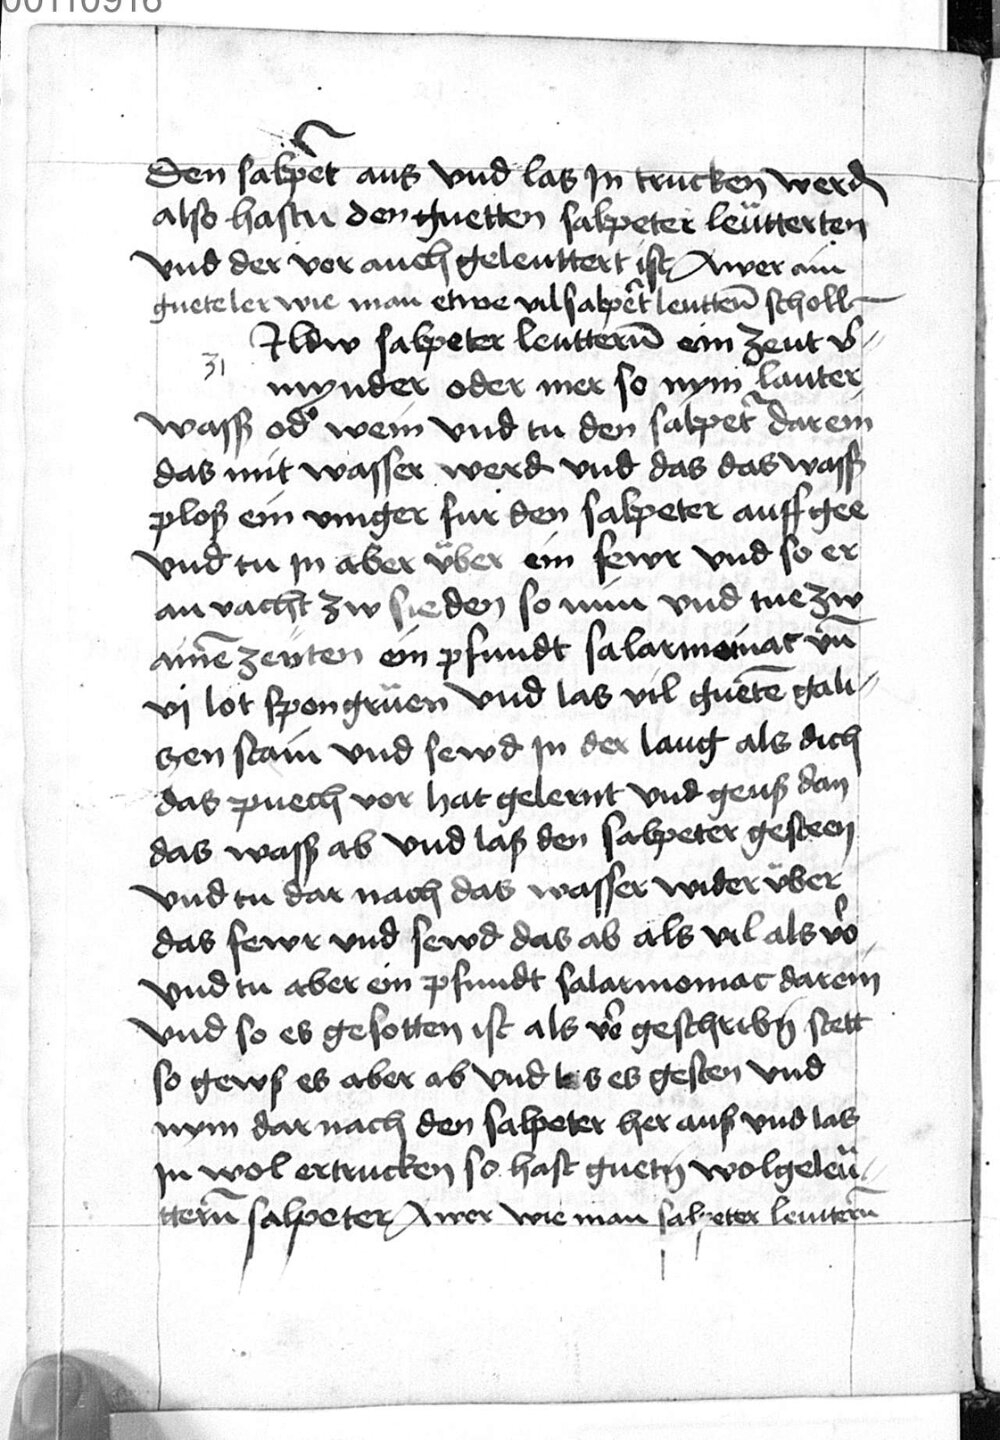 00110916
den salpet̃r aus vnd las In trucken werdn̄
also hastu den guetten salpeter leütterten
vnd der vor auch geleuttert ist Awer ain
guete ler wie man etwe vil salpet̃r leutten̄ scholl
Ildw salpeter leuttern̄ ein zent v̄
31
mynder oder mer so nym lauter
wasß od' wein vnd tu den salpet̃r darein
das mit wasser werd vnd das das wasß
ploß ein vinger fur den salpeter auff gee
vnd tu In aber v̈ber ein fewr vnd so er
an vacht zw sieden so nim vnd tue zw
ainē zeÿten ein pfundt salarmoniac vn̄
vj lot spongrüen vnd las vil guetē gali
zen stain vnd sewd In der laug als dich
das puech vor hat gelernt vnd geuß dan
das wasß ab vnd laß den salpeter gesteen
vnd tu dar nach das wasser wider v̈ber
das fewr vnd sewd das ab als vil als vō
vnd tu aber ein pfundt salarmoniac darein
vnd so es gesotten ist als vō geschribn̄ stett
so gewß es aber ab vnd las es gesten vnd
nym dar nach den salpeter her auß vnd las
In wol ertrucken so hast guetn̄ wolgeleü
ttern̄ salpeter Awer wie man salpeter leuttern̄